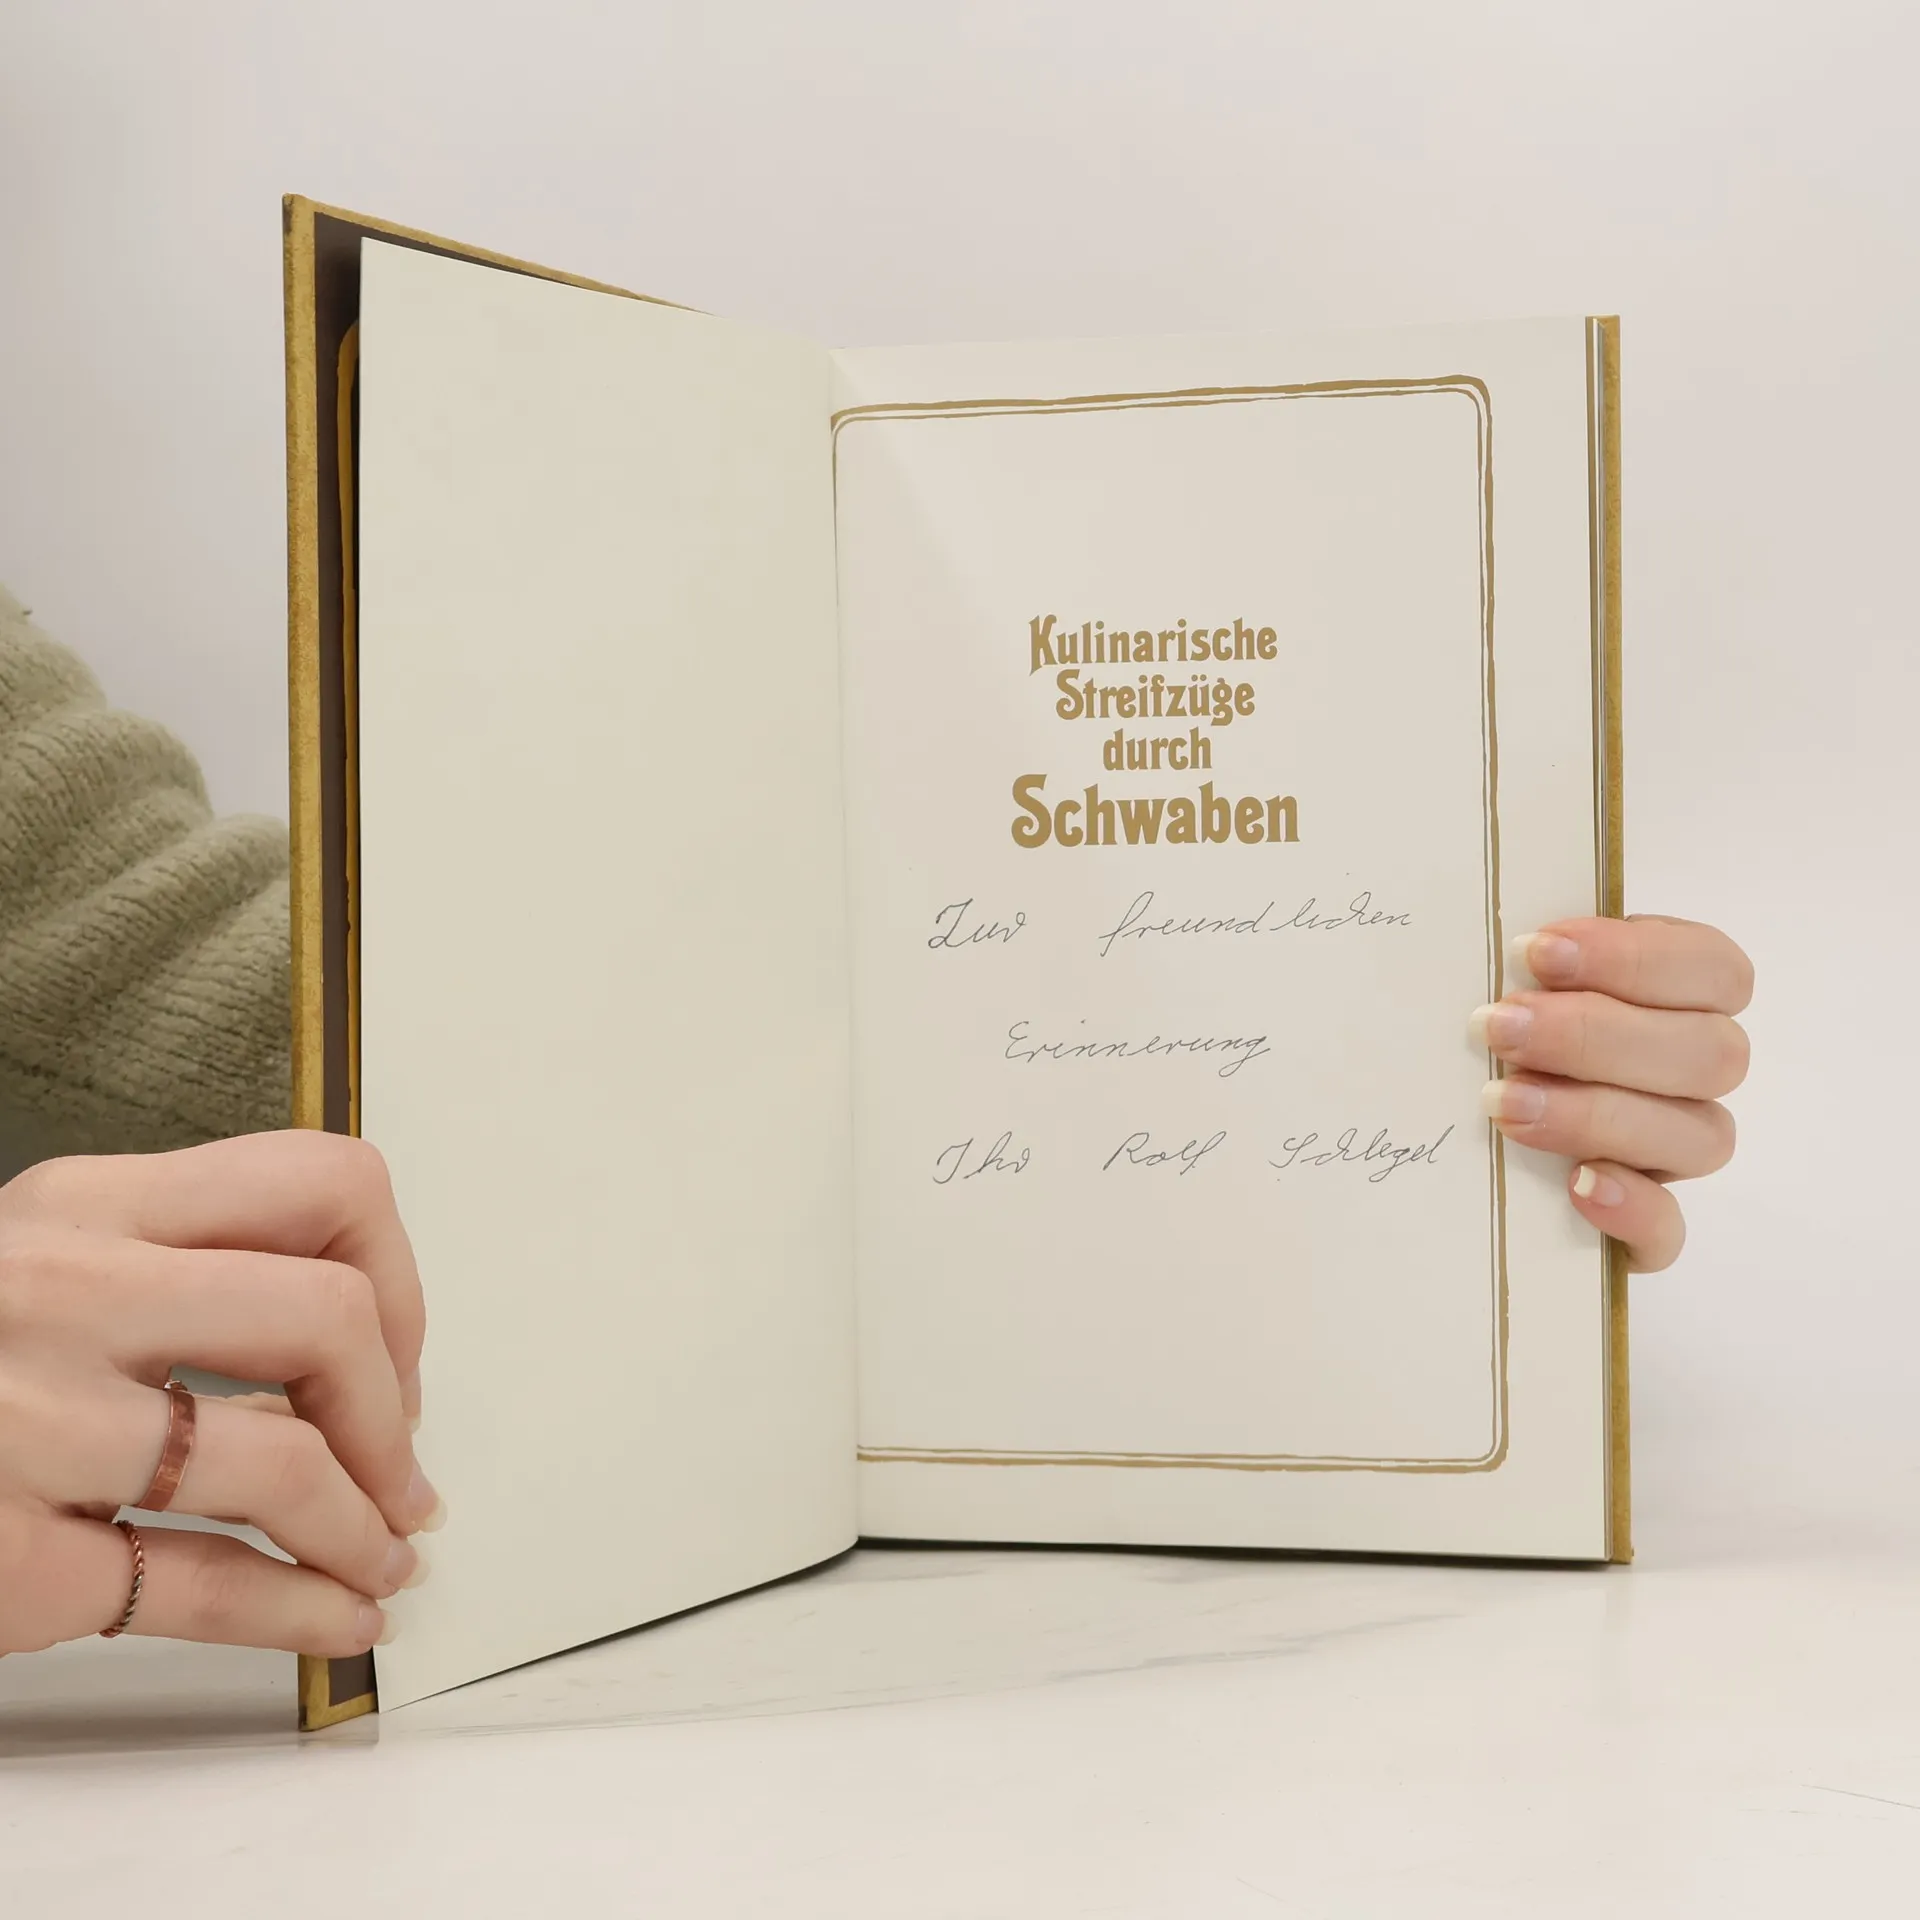 Kulinarische
Streifzüge
durch
Schwaben
Zur freundlichen
Erinnerung
Ihr Rolf Schlegel